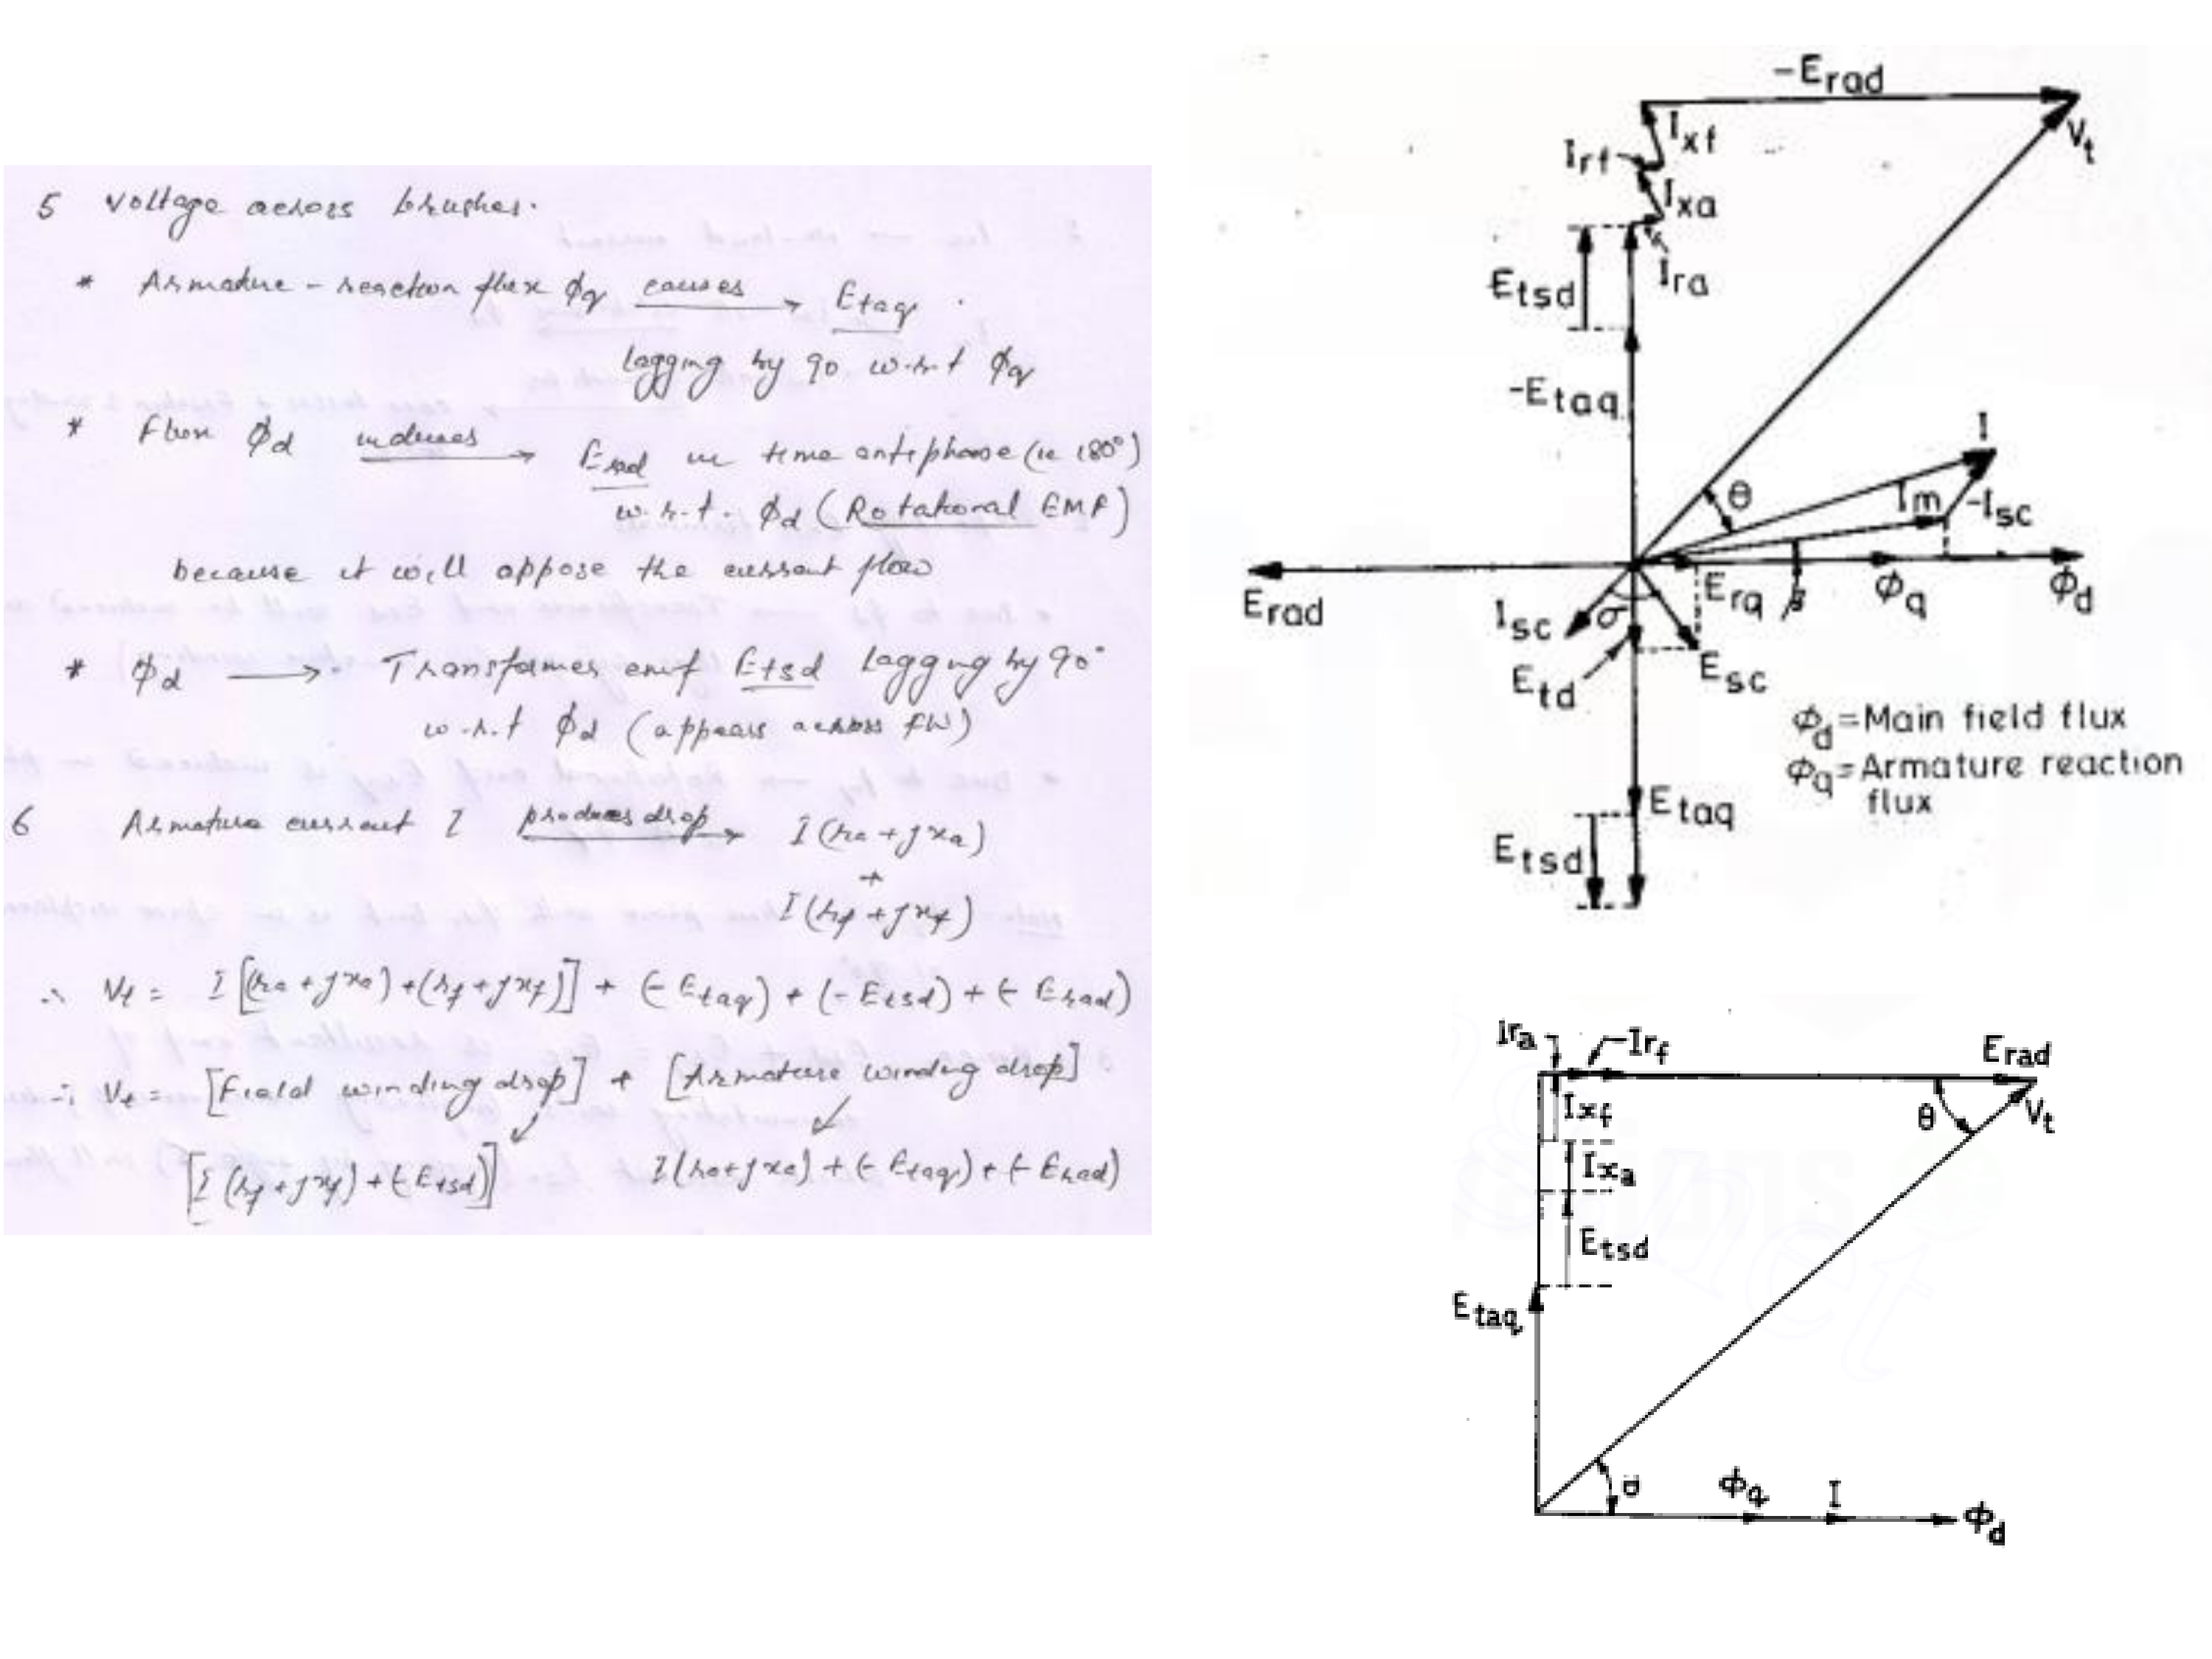 5 Voltage across brushes.
* Armature - reaction flux ϕq causes → Etaq .
lagging by 90 w.r.t ϕq
* Flux ϕd induces → Erad in time antiphase (ie 180°)
w.r.t. ϕd (Rotational EMF)
because it will oppose the current flow
* ϕd → Transformer emf Etsd lagging by 90°
w.r.t ϕd (appears across FW)
6 Armature current I produces drop → I(ra + jxa)
+
I(rf + jxf)
∴ Vt = I[(ra + jxa) + (rf + jxf)] + (-Etaq) + (-Etsd) + (-Erad)
∴ Vt = [Field winding drop] + [Armature winding drop]
[I(rf + jxf) + (-Etsd)] I(ra + jxa) + (-Etaq) + (-Erad)
-Erad
Vt
Ixf
Irf
Ixa
Ira
Etsd
-Etaq
I
θ
Im
-Isc
Erad
Erq
β
ϕq
ϕd
Isc
σ
Etd
Esc
ϕd = Main field flux
ϕq = Armature reaction
flux
Etaq
Etsd
Ira
-Irf
Erad
Vt
θ
Ixf
Ixa
Etsd
Etaq
θ
ϕq
I
ϕd